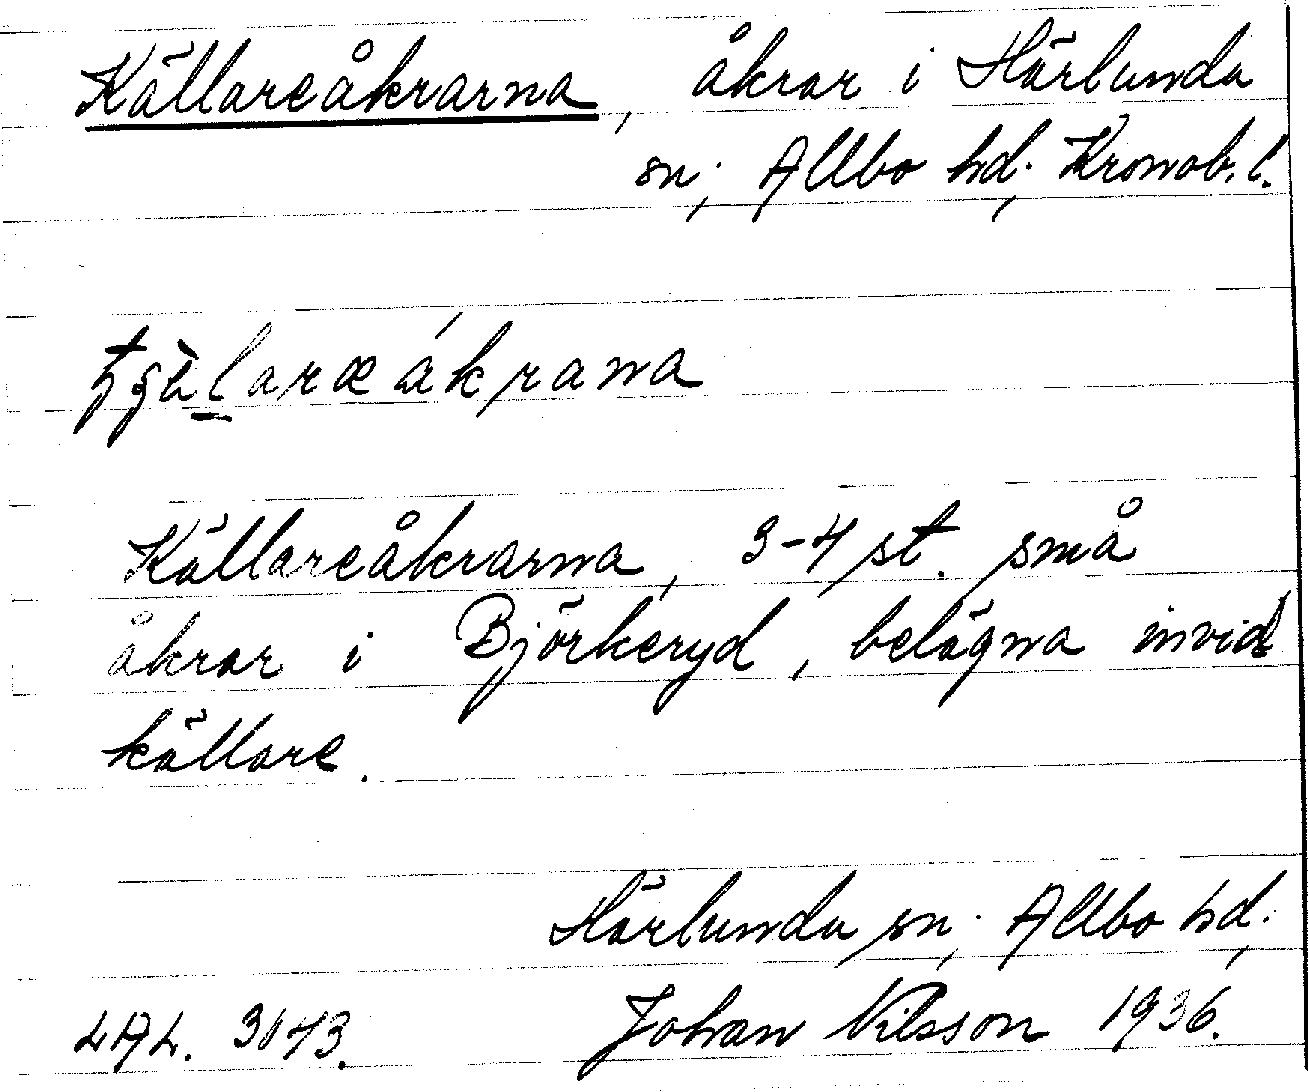 Källareåkrarna, åkrar i Härlunda
sn; Allbo hd; Kronob. l.
Källareåkrarna, 3-4 st. små
åkrar i Björkeryd, belägna invid
källare.
Härlunda sn; Allbo hd;
LAL. Johan Nilsson 1936.